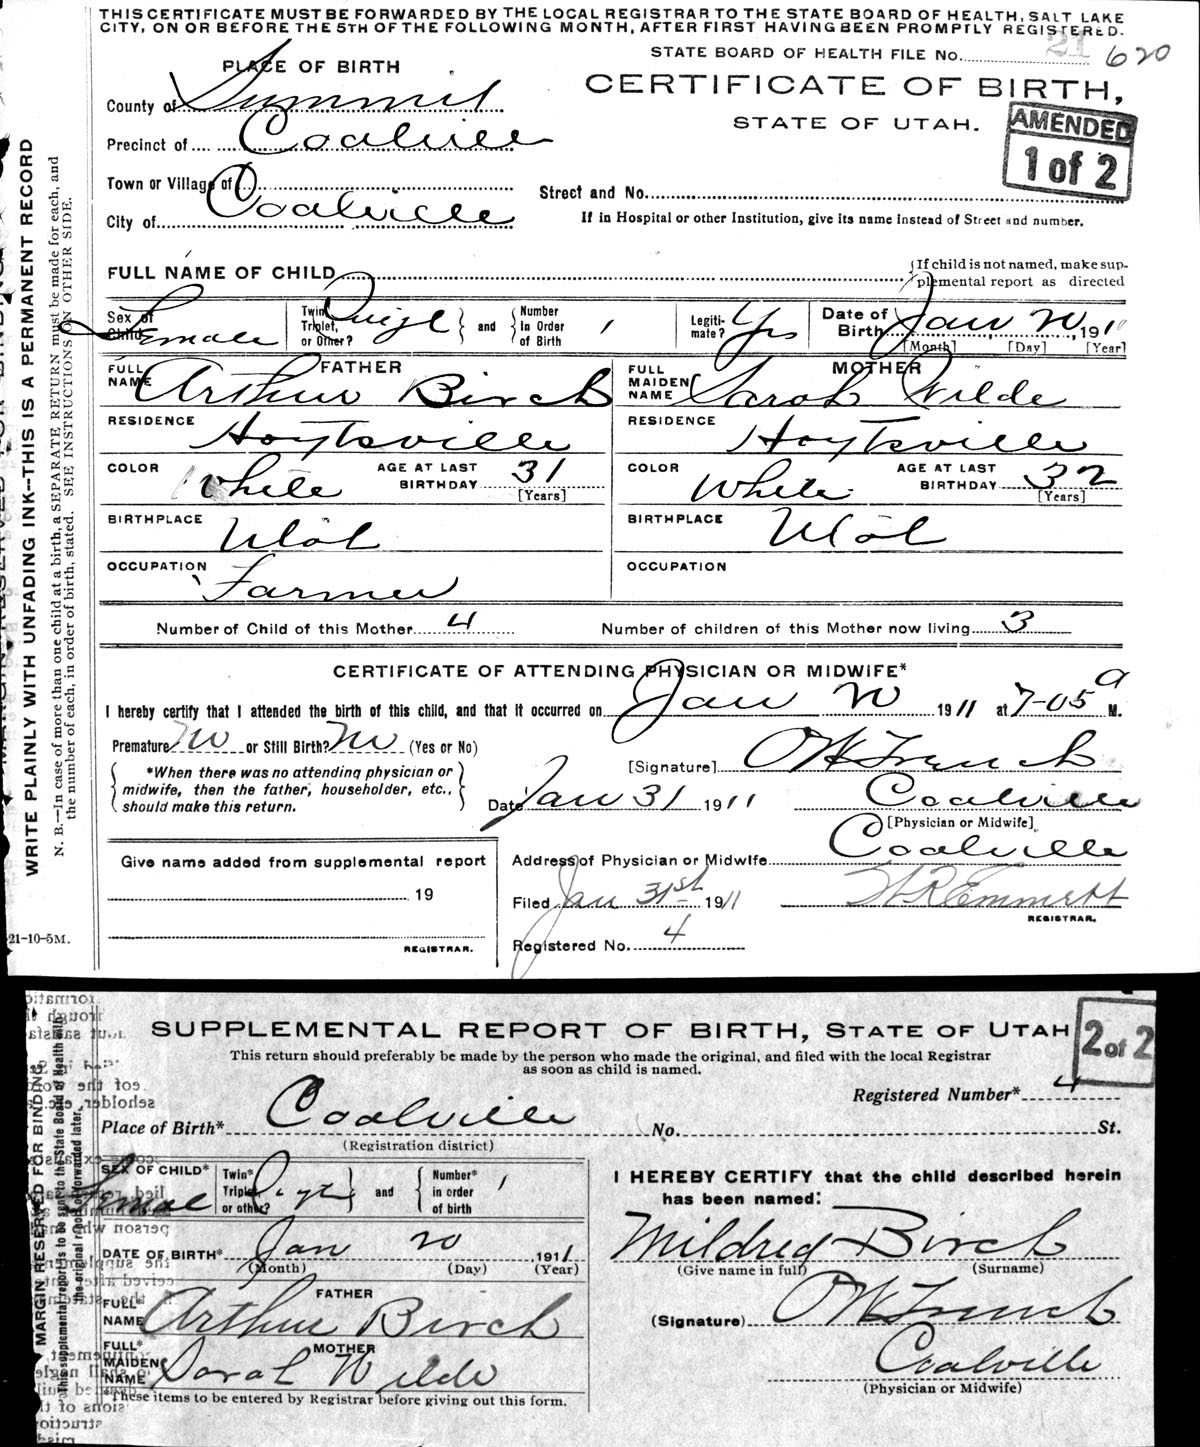 THIS CERTIFICATE MUST BE FORWARDED BY THE LOCAL REGISTRAR TO THE STATE BOARD OF HEALTH, SALT LAKE
CITY, ON OR BEFORE THE 5TH OF THE FOLLOWING MONTH, AFTER FIRST HAVING BEEN PROMPTLY REGISTERED.
STATE BOARD OF HEALTH FILE No. 21 620
PLACE OF BIRTH
CERTIFICATE OF BIRTH,
STATE OF UTAH.
AMENDED
1 of 2
County of Summit
Precinct of Coalville
Town or Village of
Street and No.
City of Coalville
If in Hospital or other Institution, give its name instead of Street and number.
FULL NAME OF CHILD
{If child is not named, make sup-
plemental report as directed
Sex of Child Female
Twin, Triplet, or Other? } and { Number In Order of Birth 1
Legiti-mate? Yes
Date of Birth Jan 20, 1911
[Month] [Day] [Year]
FATHER
FULL NAME Arthur Birch
MOTHER
FULL MAIDEN NAME Sarah Wilde
RESIDENCE Hoytsville
RESIDENCE Hoytsville
COLOR White AGE AT LAST BIRTHDAY 31 [Years]
COLOR White AGE AT LAST BIRTHDAY 32 [Years]
BIRTHPLACE Utah
BIRTHPLACE Utah
OCCUPATION Farmer
OCCUPATION
Number of Child of this Mother 4 Number of children of this Mother now living 3
CERTIFICATE OF ATTENDING PHYSICIAN OR MIDWIFE*
I hereby certify that I attended the birth of this child, and that it occurred on Jan 20 1911 at 7-05 a M.
Premature No or Still Birth? No (Yes or No)
[Signature] O W French
{ *When there was no attending physician or
midwife, then the father, householder, etc.,
should make this return. }
Date Jan 31 1911 Coalville
[Physician or Midwife]
Give name added from supplemental report
Address of Physician or Midwife Coalville
19
Filed Jan 31st 1911 W R Emmett
REGISTRAR.
REGISTRAR.
Registered No. 4
21-10-5M.
WRITE PLAINLY WITH UNFADING INK--THIS IS A PERMANENT RECORD
N. B.—In case of more than one child at a birth, a SEPARATE RETURN must be made for each, and
the number of each, in order of birth, stated. SEE INSTRUCTIONS ON OTHER SIDE.
SUPPLEMENTAL REPORT OF BIRTH, STATE OF UTAH
2 of 2
This return should preferably be made by the person who made the original, and filed with the local Registrar
as soon as child is named.
Registered Number* 4
Place of Birth* Coalville No. St.
(Registration district)
SEX OF CHILD* Female
Twin* Triplet, or other? } and { Number* in order of birth 1
I HEREBY CERTIFY that the child described herein
has been named:
Mildred Birch
(Give name in full) (Surname)
DATE OF BIRTH* Jan 20 1911
(Month) (Day) (Year)
FATHER
FULL* NAME Arthur Birch
(Signature) O W French
MOTHER
FULL* MAIDEN NAME Sarah Wilde
Coalville
(Physician or Midwife)
These items to be entered by Registrar before giving out this form.
MARGIN RESERVED FOR BINDING
This supplemental report is to be sent to the State Board of Health with
the original report, or forwarded later.